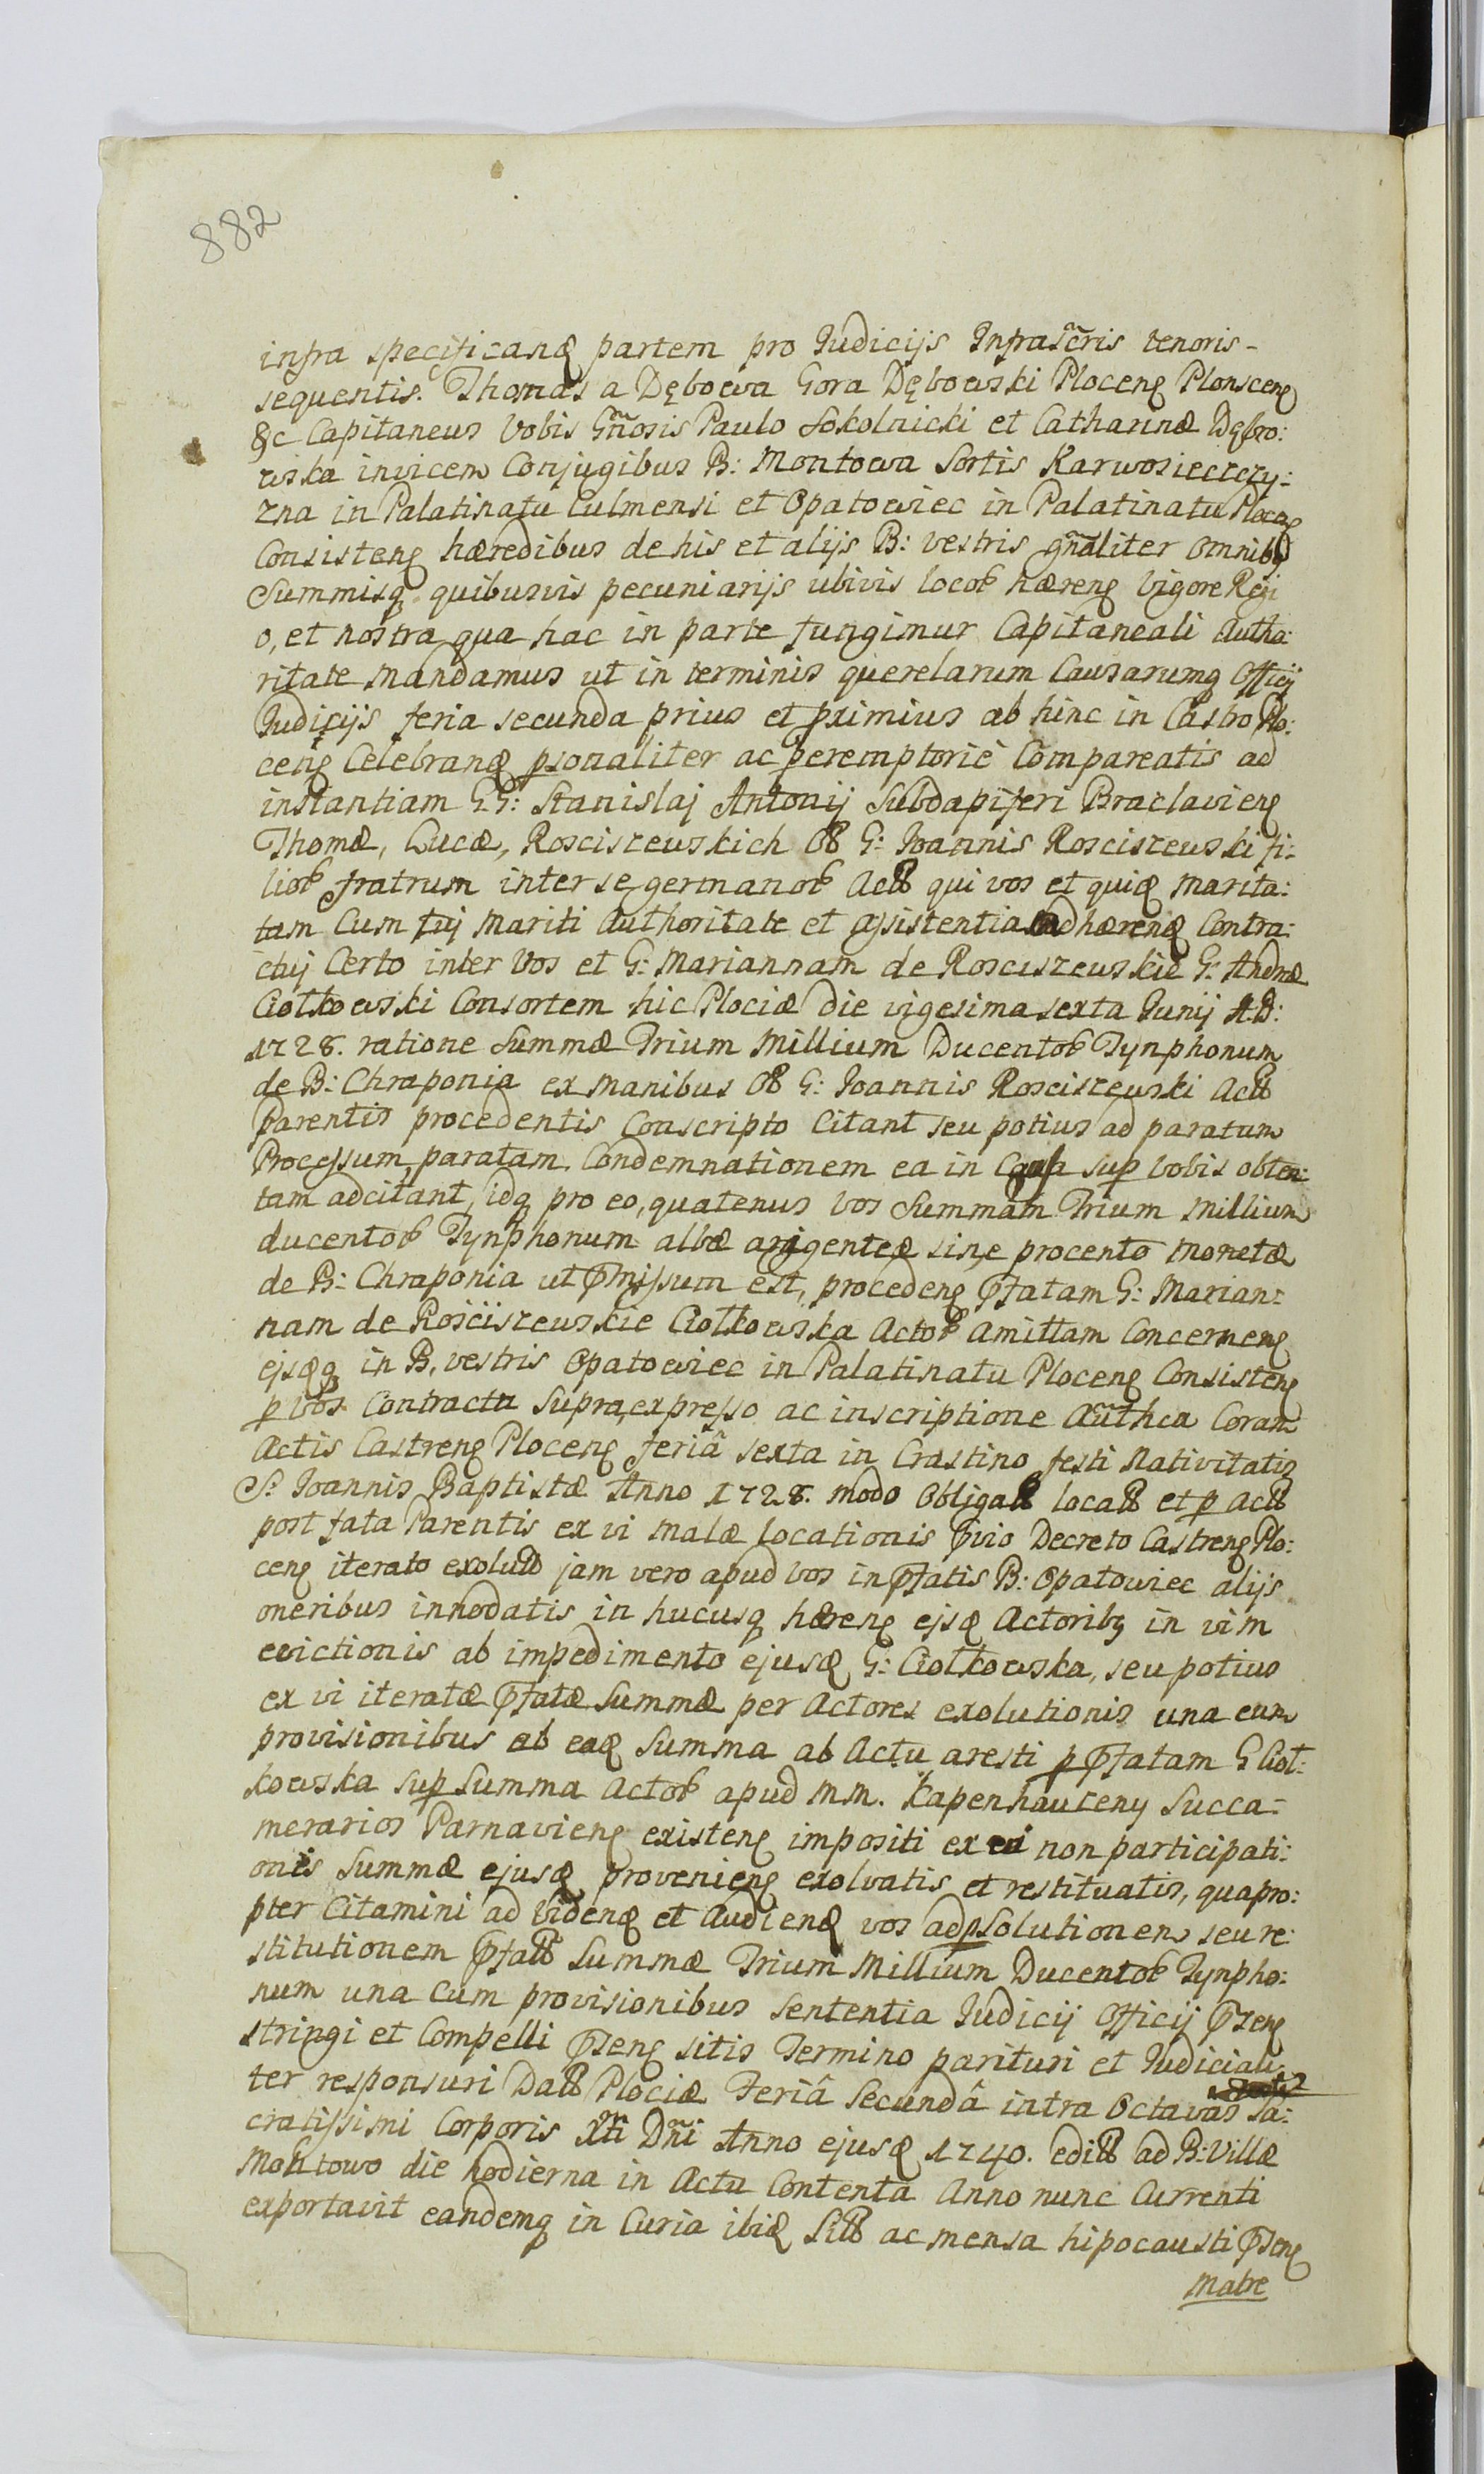 882
infra specificanḍ partem pro Judicijs Infrascr̃is tenoris-
sequentis. Thomas a Dębowa Gora Dębowski Plocenȩ Plonscenȩ
&c Capitaneus Vobis Gñosis Paulo Sokolnicki et Catharinæ Dębo:
wska invicem Conjugibus B: Montowa Sortis Karwosieczczy:
zna in Palatinatu Culmensi et Opatowiec in Palatinatu Plocenȩ
Consistenȩ hæredibus de his et alijs B: vestris gñaliter omnibȝ
Summisqȝ quibusvis pecuniarijs ubivis locoꝝ hærenȩ Vigore Regi
o, et nostra qua hac in parte fungimur Capitaneali Autho:
ritate Mandamus ut in terminis querelarum Causarumqȝ Officij
Judicijs feria secunda prius et proximius ab hinc in Castro Plo:
cenȩ Celebranḍ ꝑsonaliter ac peremptorie Compareatis ad
instantiam G.G: Stanislaj Antonij Subdapiferi Braclavienȩ
Thomæ, Lucæ, Rosciszewskich Oℓℓ G: Joannis Rosciszewski fi:
lioꝝ fratrum inter se germanoꝝ Actℓℓ qui vos et quiḍ Marita:
tam Cum tuj Mariti Authoritate et assistentia adhærenḍ Contra:
ctuj Certo inter Vos et G: Mariannam de Rosciszewskie G: Andreæ
Ciołkowski Consortem hic Plociæ die vigesima sexta Junij A:D:
1728. ratione Summæ Trium Millium Ducentoꝝ Tynphonum
de B: Chraponia ex manibus Oℓℓ G: Joannis Rosciszewski Actℓℓ
Parentis procedentis Conscripto Citant seu potius ad paratum
Processum, paratam Condemnationem ea in Causa suꝑ vobis obten:
tam adcitant, idqȝ pro eo, quatenus vos Summam Trium Millium
ducentoꝝ Tynphonum albæ argenteæ sine procento monetæ
de B: Chraponia ut p̃missum est, procedenȩ p̃fatam G: Marian:
nam de Rosciszewskie Ciołkowska Actoꝝ Amittam Concernenȩ
ejsḍqȝ in B, vestris Opatowiec in Palatinatu Plocenȩ Consistenȩ
ꝑ Vos Contractu Supraexpresso ac inscriptione Aũthca Coram
Actis Castrenȩ Plocenȩ feriâ sexta in Crastino festi Nativitatis
S: Joannis Baptistæ Anno 1728. modo Obligatℓℓ locatℓℓ et ꝑ Actℓℓ
post fata Parentis ex vi malæ locationis p̃vio Decreto Castrenȩ Plo:
cenȩ iterato exolutℓℓ jam vero apud vos in p̃fatis B: Opatowiec alijs
oneribus innodatis in hucusqȝ hærenȩ ejsḍ Actoribȝ in vim
evictionis ab impedimento ejusḍ G: Ciołkowska, seu potius
ex vi iteratæ p̃fatæ Summæ per Actores exolutionis una cum
provisionibus ab eaḍ Summa ab Actu aresti ꝑ p̃fatam G Cioł:
kowska suꝑ Summa Actoꝝ apud MM. Kapenhauceny Succa:
merarios Parnavienȩ existenȩ impositi ex vi non participati:
onis Summæ ejusḍ provenienȩ exolvatis et restituatis, quapro:
pter Citamini ad Videnḍ et Audienḍ vos ad ꝑsolutionem seu re:
stitutionem p̃fatℓℓ Summæ Trium Millium Ducentoꝝ Tynpho:
num una cum provisionibus Sententia Judicij Officij p̃senȩ
stringi et Compelli p̃senȩ sitis Termino parituri et Judiciali
ter responsuri Datℓℓ Plociæ Feriâ Secundâ intra Octavas Sa:
cratissimi Corporis Xt̃i Dñi Anno ejusḍ 1740. editℓℓ ad B: Villæ
Montowo die hodierna in Actu Contenta Anno nunc Currenti
exportavit eandemqȝ in Curia ibiḍ Sitℓℓ ac mensa hipocausti p̃senȩ
Matre